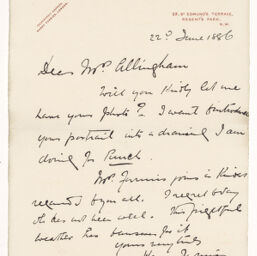 22. St EDMUND'S TERRACE,
REGENT'S PARK.
N.W.
22d June 1886
Dear Mrs Allingham
Will you kindly let me
have your photo? I want to introduce
your portrait into a drawing I am
doing for Punch.
Mrs Furniss joins in kindest
regards to you all. I regret to say
she has not been well. This frightful
weather has been
Yours very truly